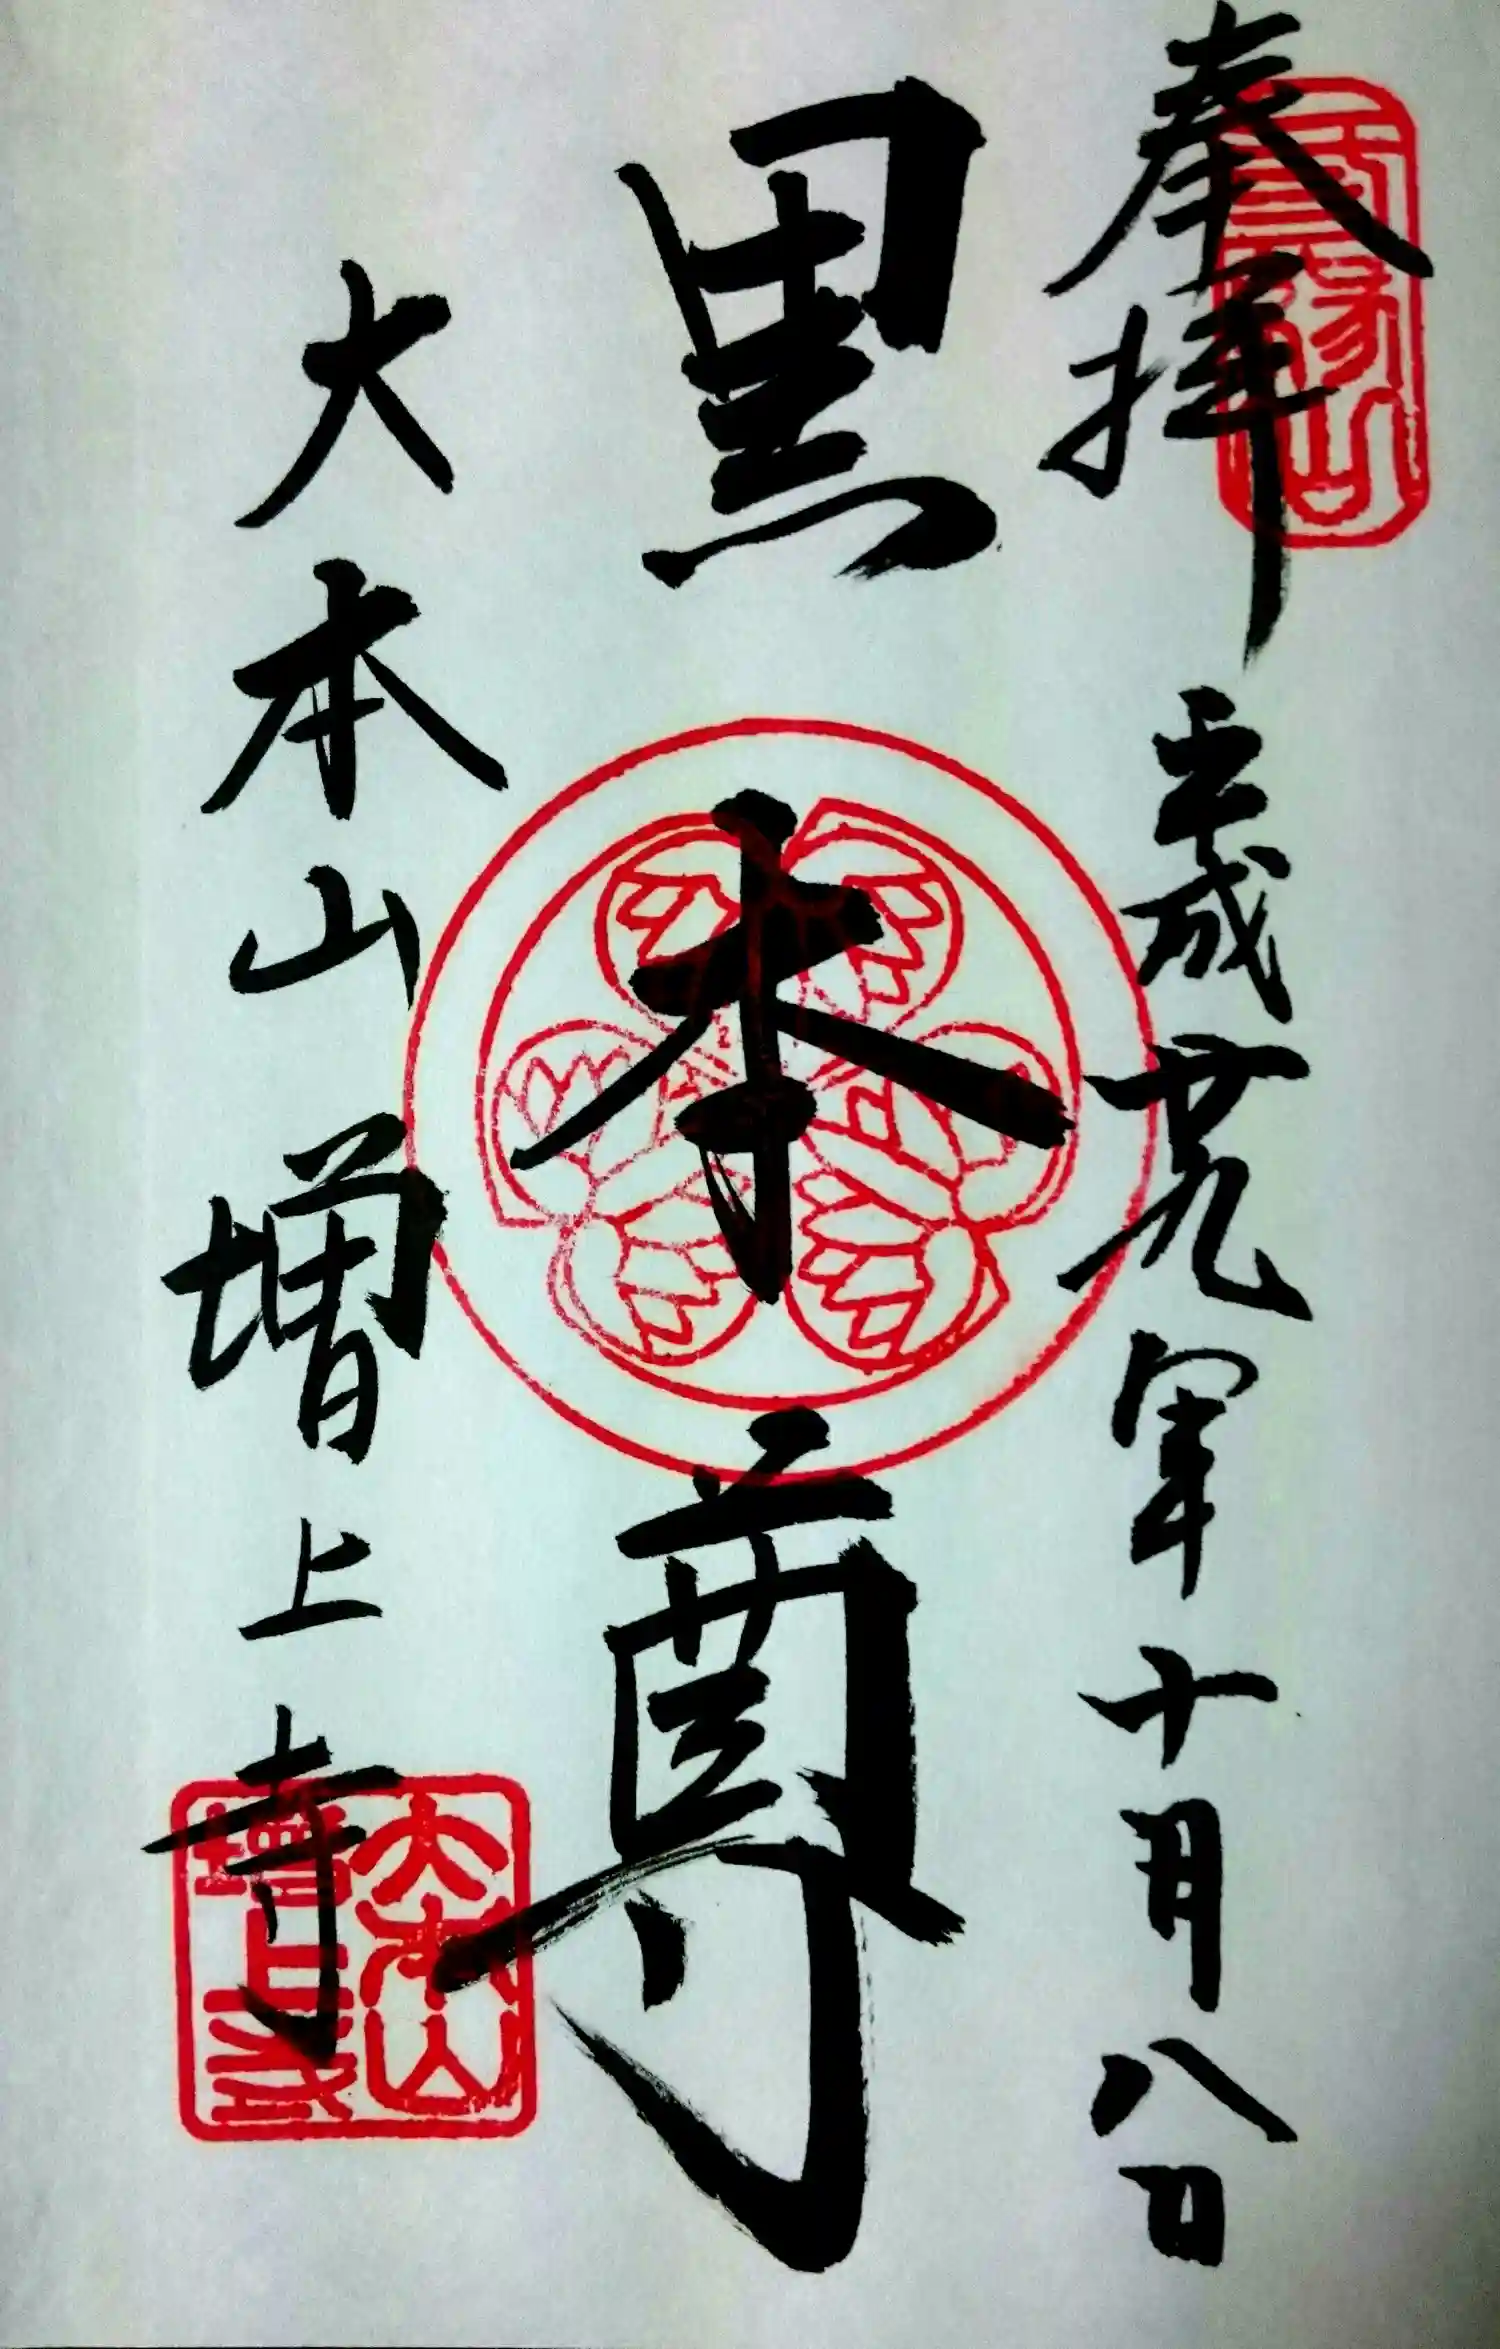 奉拝 平成廿九年十月八日
三縁山
黒本尊
大本山増上寺
大本山
増上寺